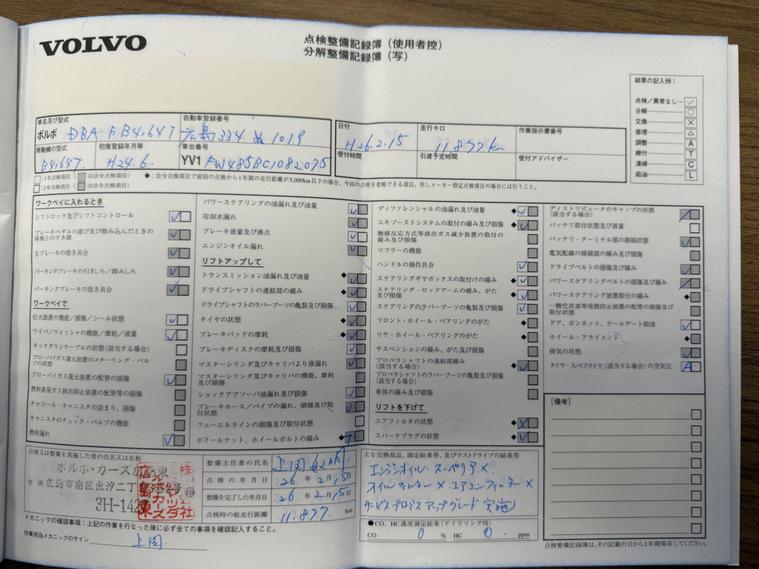 VOLVO
点検整備記録簿（使用者控）
分解整備記録簿（写）
結果の記入例：
点検／異常なし… ✓
分解… ○
交換… ×
修理… △
調整… A
締付… T
清掃… C
給油… L
車名及び型式
ボルボ DBA-FB4164T
自動車登録番号
広島 334 ぬ 1019
日付
H26.2.15
走行キロ
11.877 km
作業指示書番号
原動機の型式
B4164T
初度登録年月等
H24.6.
車台番号
YV1
受付時間
引渡予定時間
受付アドバイザー
ワークベイに入れるとき
シフトロック及びシフトコントロール
ブレーキペダルの遊び及び踏み込んだときの
床板とのすき間
主ブレーキの効き具合
パーキングブレーキの引きしろ／踏みしろ
パーキングブレーキの効き具合
ワークベイで
灯火装置の機能／損傷／シール状態
ワイパ／ウォッシャの機能／摩耗／液量
キックダウンケーブルの状態（該当する場合）
ブローバイガス還元装置のメターリング・バルブの状態
ブローバイガス還元装置の配管の損傷
燃料蒸発ガス排出抑止装置の配管等の損傷
チャコール・キャニスタの詰まり、損傷
キャニスタのチェック・バルブの機能
燃料漏れ
パワーステアリングの油漏れ及び油量
冷却水漏れ
ブレーキ液量及び沸点
エンジンオイル漏れ
リフトアップして
トランスミッション油漏れ及び油量
ドライブシャフトの連結部の緩み
ドライブシャフトのラバーブーツの亀裂及び損傷
タイヤの状態
ブレーキパッドの摩耗
ブレーキディスクの摩耗及び損傷
マスターシリンダ及びキャリパより液漏れ
マスターシリンダ及びキャリパの機能、摩耗及び損傷
ショックアブソーバ油漏れ及び損傷
ブレーキホース／パイプの漏れ、損傷及び取付状態
フューエルラインの損傷及び取付状態
ホイールナット、ホイールボルトの緩み
ディファレンシャルの油漏れ及び油量
エキゾーストシステムの取付の緩み及び損傷
触媒反応方式等排出ガス減少装置の取付の緩み及び損傷
マフラーの機能
ハンドルの操作具合
ステアリングギヤボックスの取付けの緩み
ステアリング・ロッドアームの緩み、がた及び損傷
ステアリングのラバーブーツの亀裂及び損傷
フロント・ホイール・ベアリングのがた
リヤ・ホイール・ベアリングのがた
サスペンションの緩み、がた及び損傷
プロペラシャフトの連結部緩み
（該当する場合）
プロペラシャフトのラバーブーツの亀裂及び損傷
（該当する場合）
車体の緩み及び損傷
リフトを下げて
エアフィルタの状態
スパークプラグの状態
ディストリビュータのキャップの状態
（該当する場合）
バッテリ取付状態及び液量
バッテリ・ターミナル部の接続状態
電気配線の接続部の緩み及び損傷
ドライブベルトの損傷及び緩み
パワーステアリングベルトの損傷及び緩み
パワーステアリング装置取付の緩み
一酸化炭素等発散防止装置の配管の損傷及び取付状態
ドア、ボンネット、テールゲート給油
ホイール・アライメント
排気の状態
タイヤ・スペアタイヤ（該当する場合）の空気圧 A
［備考］
点検又は整備を実施した者の氏名又は名称
ボルボ・カーズ広島東
住所 広島市南区出汐二丁目
3H-142
整備主任者の氏名
点検の年月日 26年 2月15日
整備を完了した年月日 26年 2月15日
点検時の総走行距離 11.877
主な交換部品、測定結果等、及びテストドライブの結果等
エンジンオイル スーペリア×
オイルフィルター× エアコンフィルター×
サービスプロミスアップグレード 実施
●CO、HC濃度測定結果（アイドリング時）
CO 0 % HC 0 ppm
メカニックの確認事項：上記の作業を行なった後に必ず全ての事項を確認すること。
作業担当メカニックのサイン 上岡
点検整備記録簿は、その記載の日から2年間保存してください。